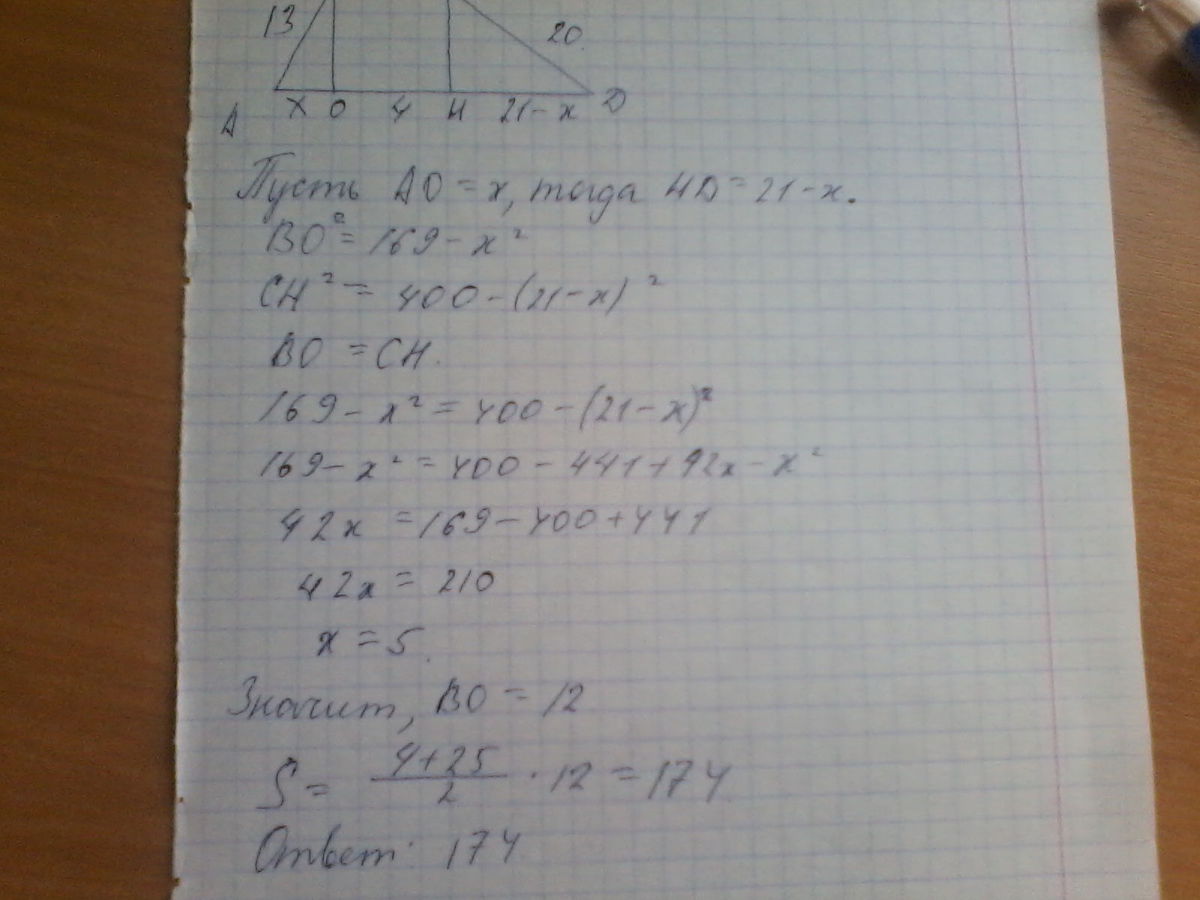 13
20.
A x O 4 H 21-x D
Пусть AO = x, тогда HD = 21-x.
BO² = 169 - x²
CH² = 400 - (21-x)²
BO = CH.
169 - x² = 400 - (21-x)²
169 - x² = 400 - 441 + 42x - x²
42x = 169 - 400 + 441
42x = 210
x = 5.
Значит, BO = 12
S = (4+25)/2 · 12 = 174
Ответ: 174